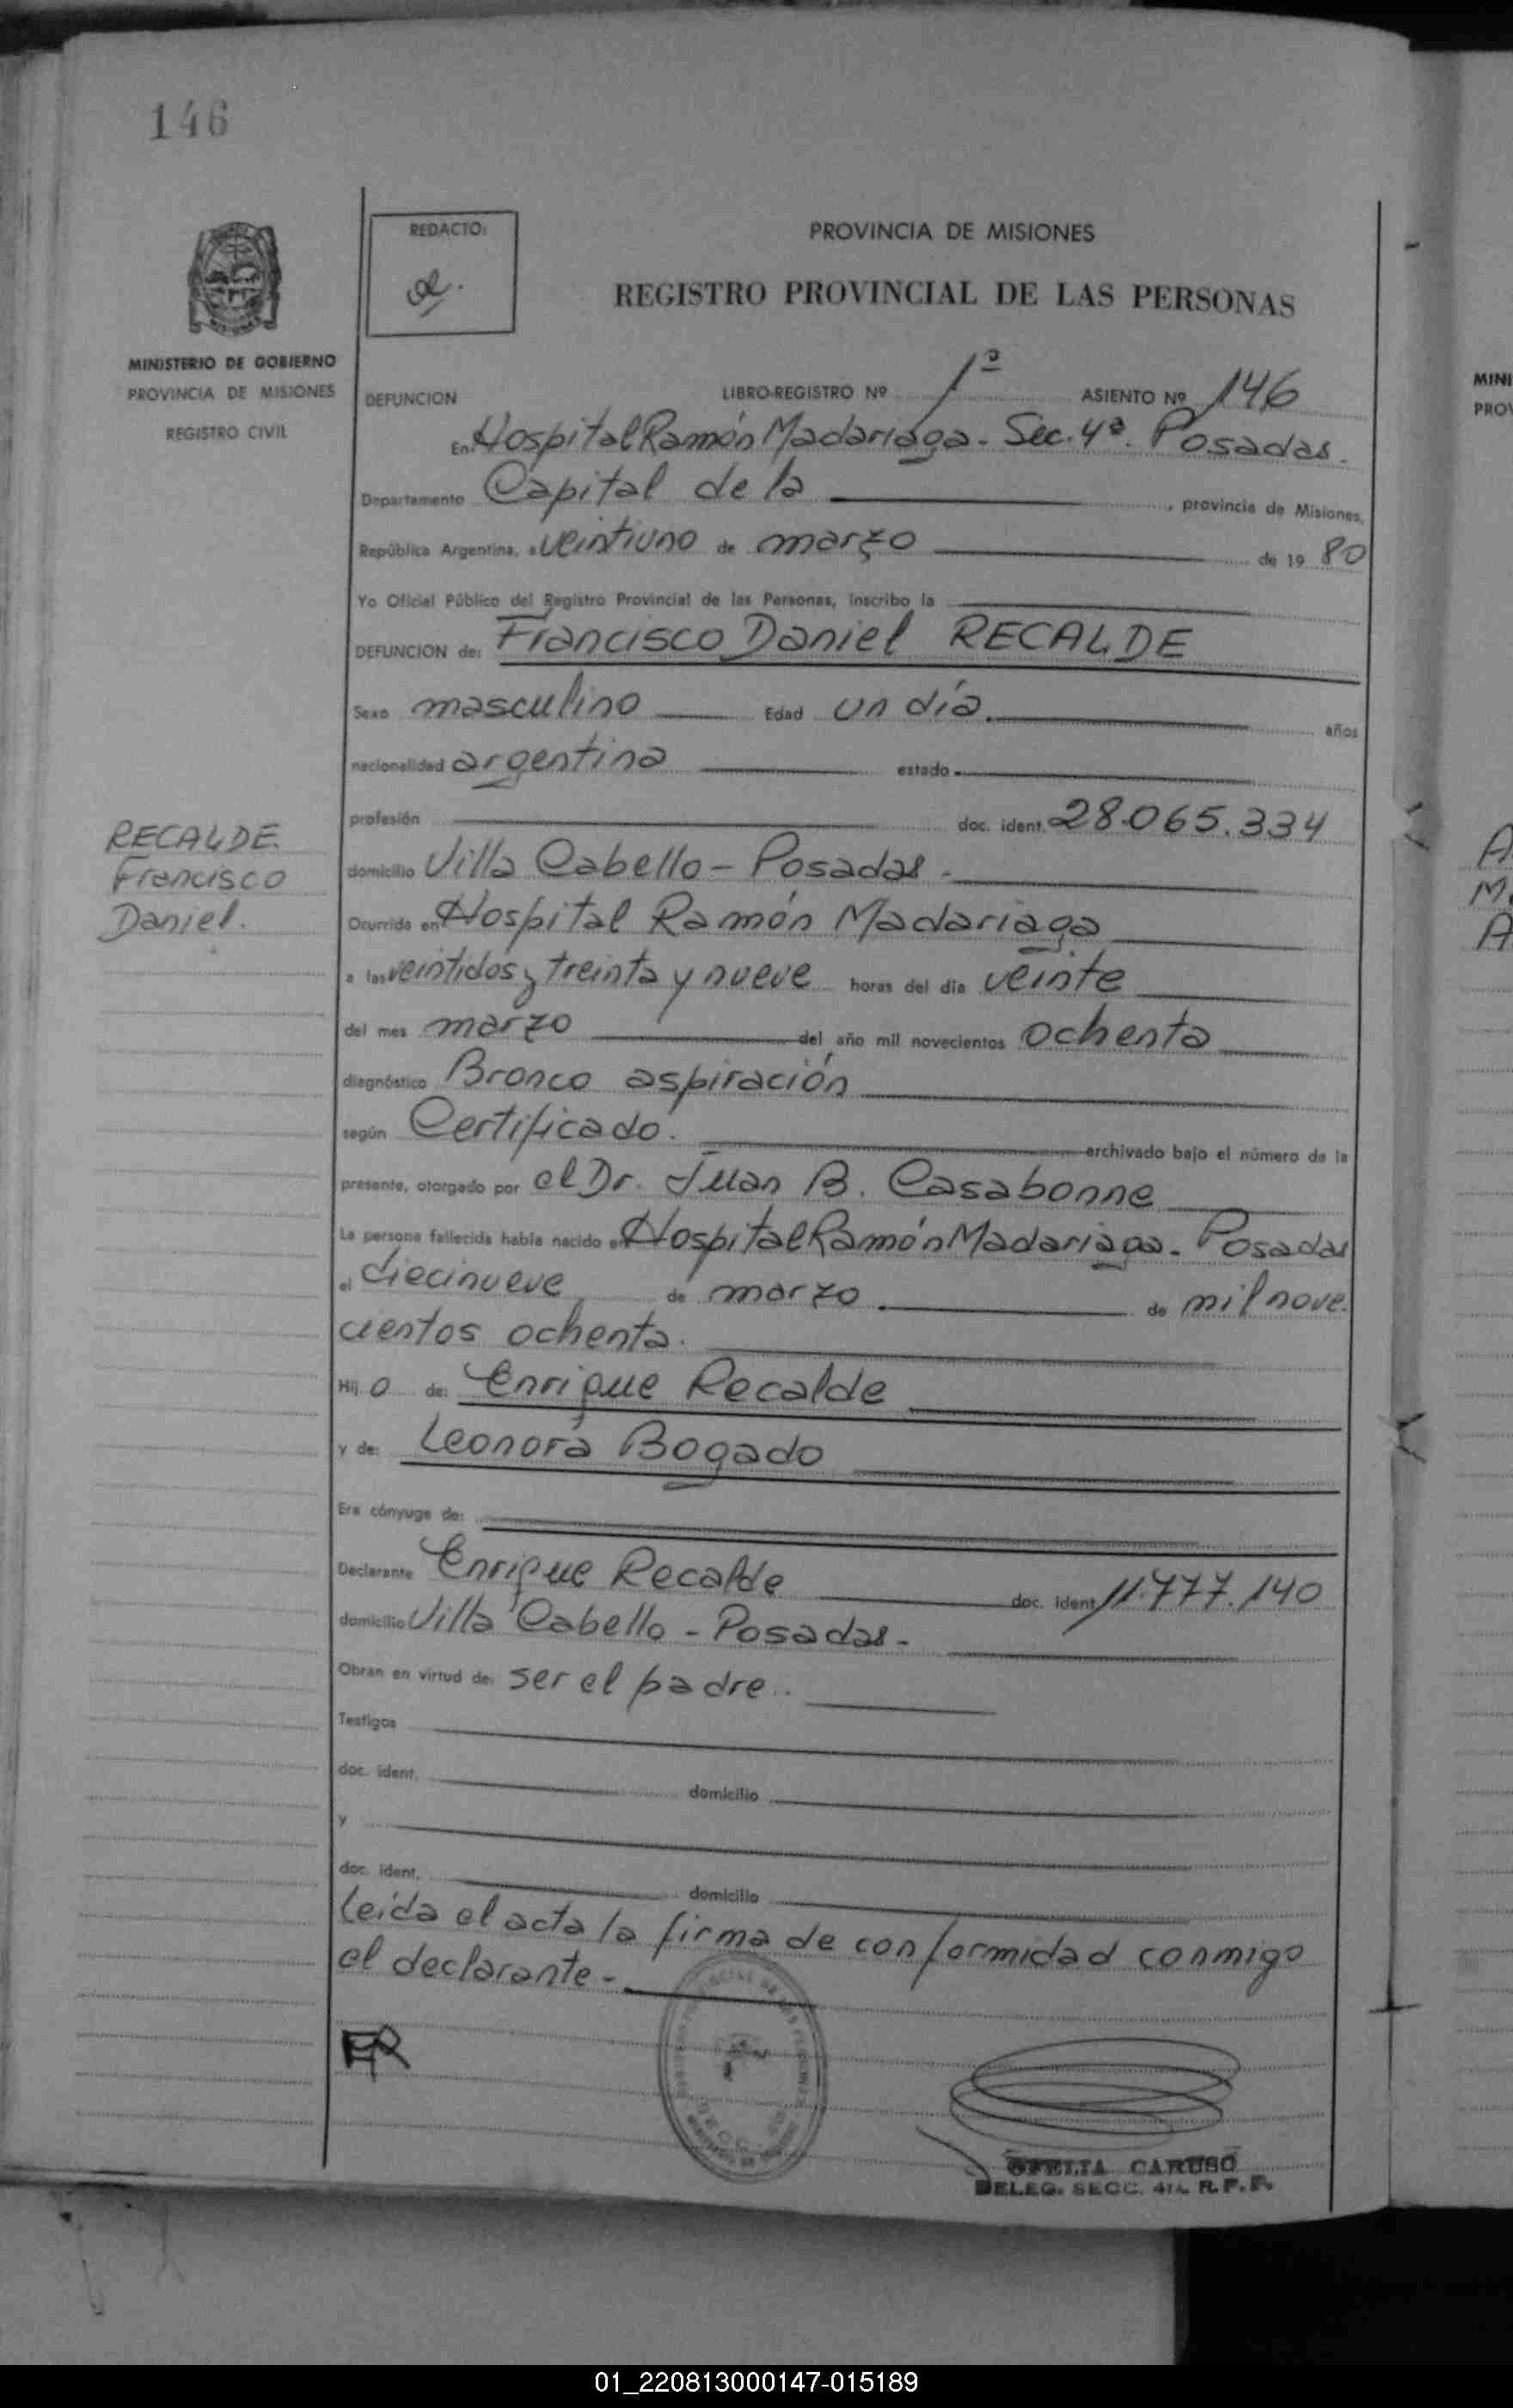 146
REDACTO:
PROVINCIA DE MISIONES
REGISTRO PROVINCIAL DE LAS PERSONAS
MINISTERIO DE GOBIERNO
PROVINCIA DE MISIONES
REGISTRO CIVIL
DEFUNCION LIBRO-REGISTRO Nº 1º ASIENTO Nº 146
En Hospital Ramón Madariaga - Sec. 4ª. Posadas -
Departamento Capital de la , provincia de Misiones,
República Argentina, a veintiuno de marzo de 19 80
Yo Oficial Público del Registro Provincial de las Personas, inscribo la
DEFUNCION de: Francisco Daniel RECALDE
Sexo masculino Edad un día. años
nacionalidad argentina estado
profesión doc. ident. 28.065.334
RECALDE
Francisco
Daniel.
domicilio Villa Cabello - Posadas -
Ocurrida en Hospital Ramón Madariaga
a las veintidós y treinta y nueve horas del día veinte
del mes marzo del año mil novecientos ochenta
diagnóstico Bronco aspiración
según Certificado. archivado bajo el número de la
presente, otorgado por el Dr. Juan B. Casabonne
La persona fallecida había nacido en Hospital Ramón Madariaga - Posadas
el diecinueve de marzo de mil nove-
cientos ochenta.
Hij o de: Enrique Recalde
y de: Leonora Bogado
Era cónyuge de:
Declarante Enrique Recalde doc. ident. 11.777.140
domicilio Villa Cabello - Posadas -
Obran en virtud de: ser el padre..
Testigos
doc. ident. domicilio
y
doc. ident. domicilio
Leída el acta la firma de conformidad conmigo
el declarante -
ER
OFELIA CARUSO
DELEG. SECC. 4ta. R.P.P.
01_220813000147-015189